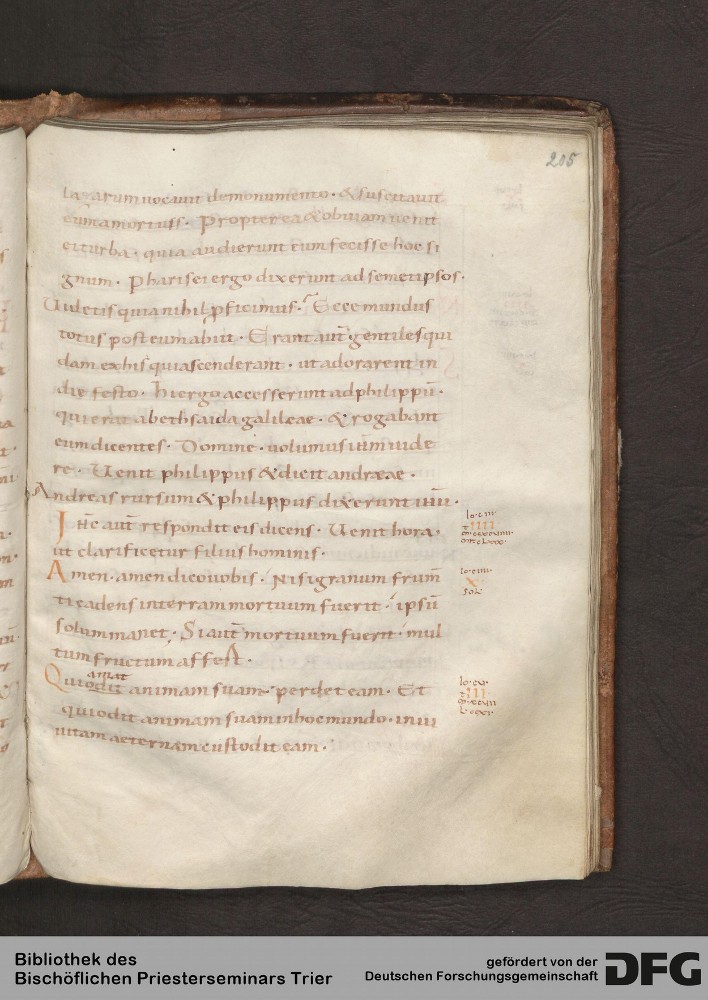 205
lazarum uocauit demonumento · & suscitauit
eum amortuis · Propterea & obuiam uenit
ei turba · quia audierunt eum fecisse hoc si
gnum · Pharisei ergo dixerunt ad semetipsos ·
Uidetis quia nihil pficimus · Ecce mundus
totus post eum abiit · Erant aut gentiles qui
dam exhis quiascenderant · ut adorarent in
die festo · hiergo accesserunt ad philippū ·
qui erat abethsaida galileae · & rogabant
eum dicentes · Domine · uolumus ihm uide
re · Uenit philippus & dicit andreae ·
Andreas rursum & philippus dixerunt ihu ·
Ihc aut respondit eis dicens · Uenit hora ·
ut clarificetur filius hominis ·
Amen · amen dico uobis · Nisi granum frum
ti cadens interram mortuum fuerit · ipsū
solum manet · Si aut mortuum fuerit · mul
tum fructum affert ·
amat
Qui odit animam suam · perdet eam · Et
qui odit animam suam inhoc mundo · in ui
uitam aeternam custodit eam ·
Bibliothek des
Bischöflichen Priesterseminars Trier
gefördert von der
Deutschen Forschungsgemeinschaft
DFG